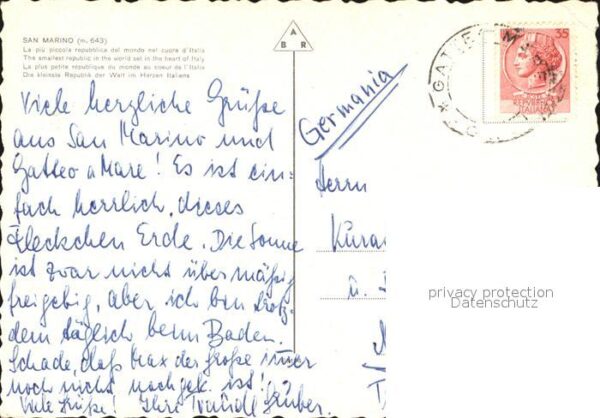 SAN MARINO (m. 643)
La più piccola repubblica del mondo nel cuore d'Italia
The smallest republic in the world set in the heart of Italy
La plus petite république du monde au coeur de l'Italie
Die kleinste Republik der Welt im Herzen Italiens
A
B R
35
Viele herzliche Grüße
aus San Marino und
Gatteo a Mare! Es ist ein-
fach herrlich, dieses
Fleckchen Erde. Die Sonne
ist zwar nicht übermäßig
freigebig, aber ich bin trotz-
dem täglich beim Baden.
Schade, daß Max der Große immer
noch nicht nachgek. ist!
Viele Grüße! Ihre Traudl Gruber.
Germania
Herrn
u.
privacy protection
Datenschutz